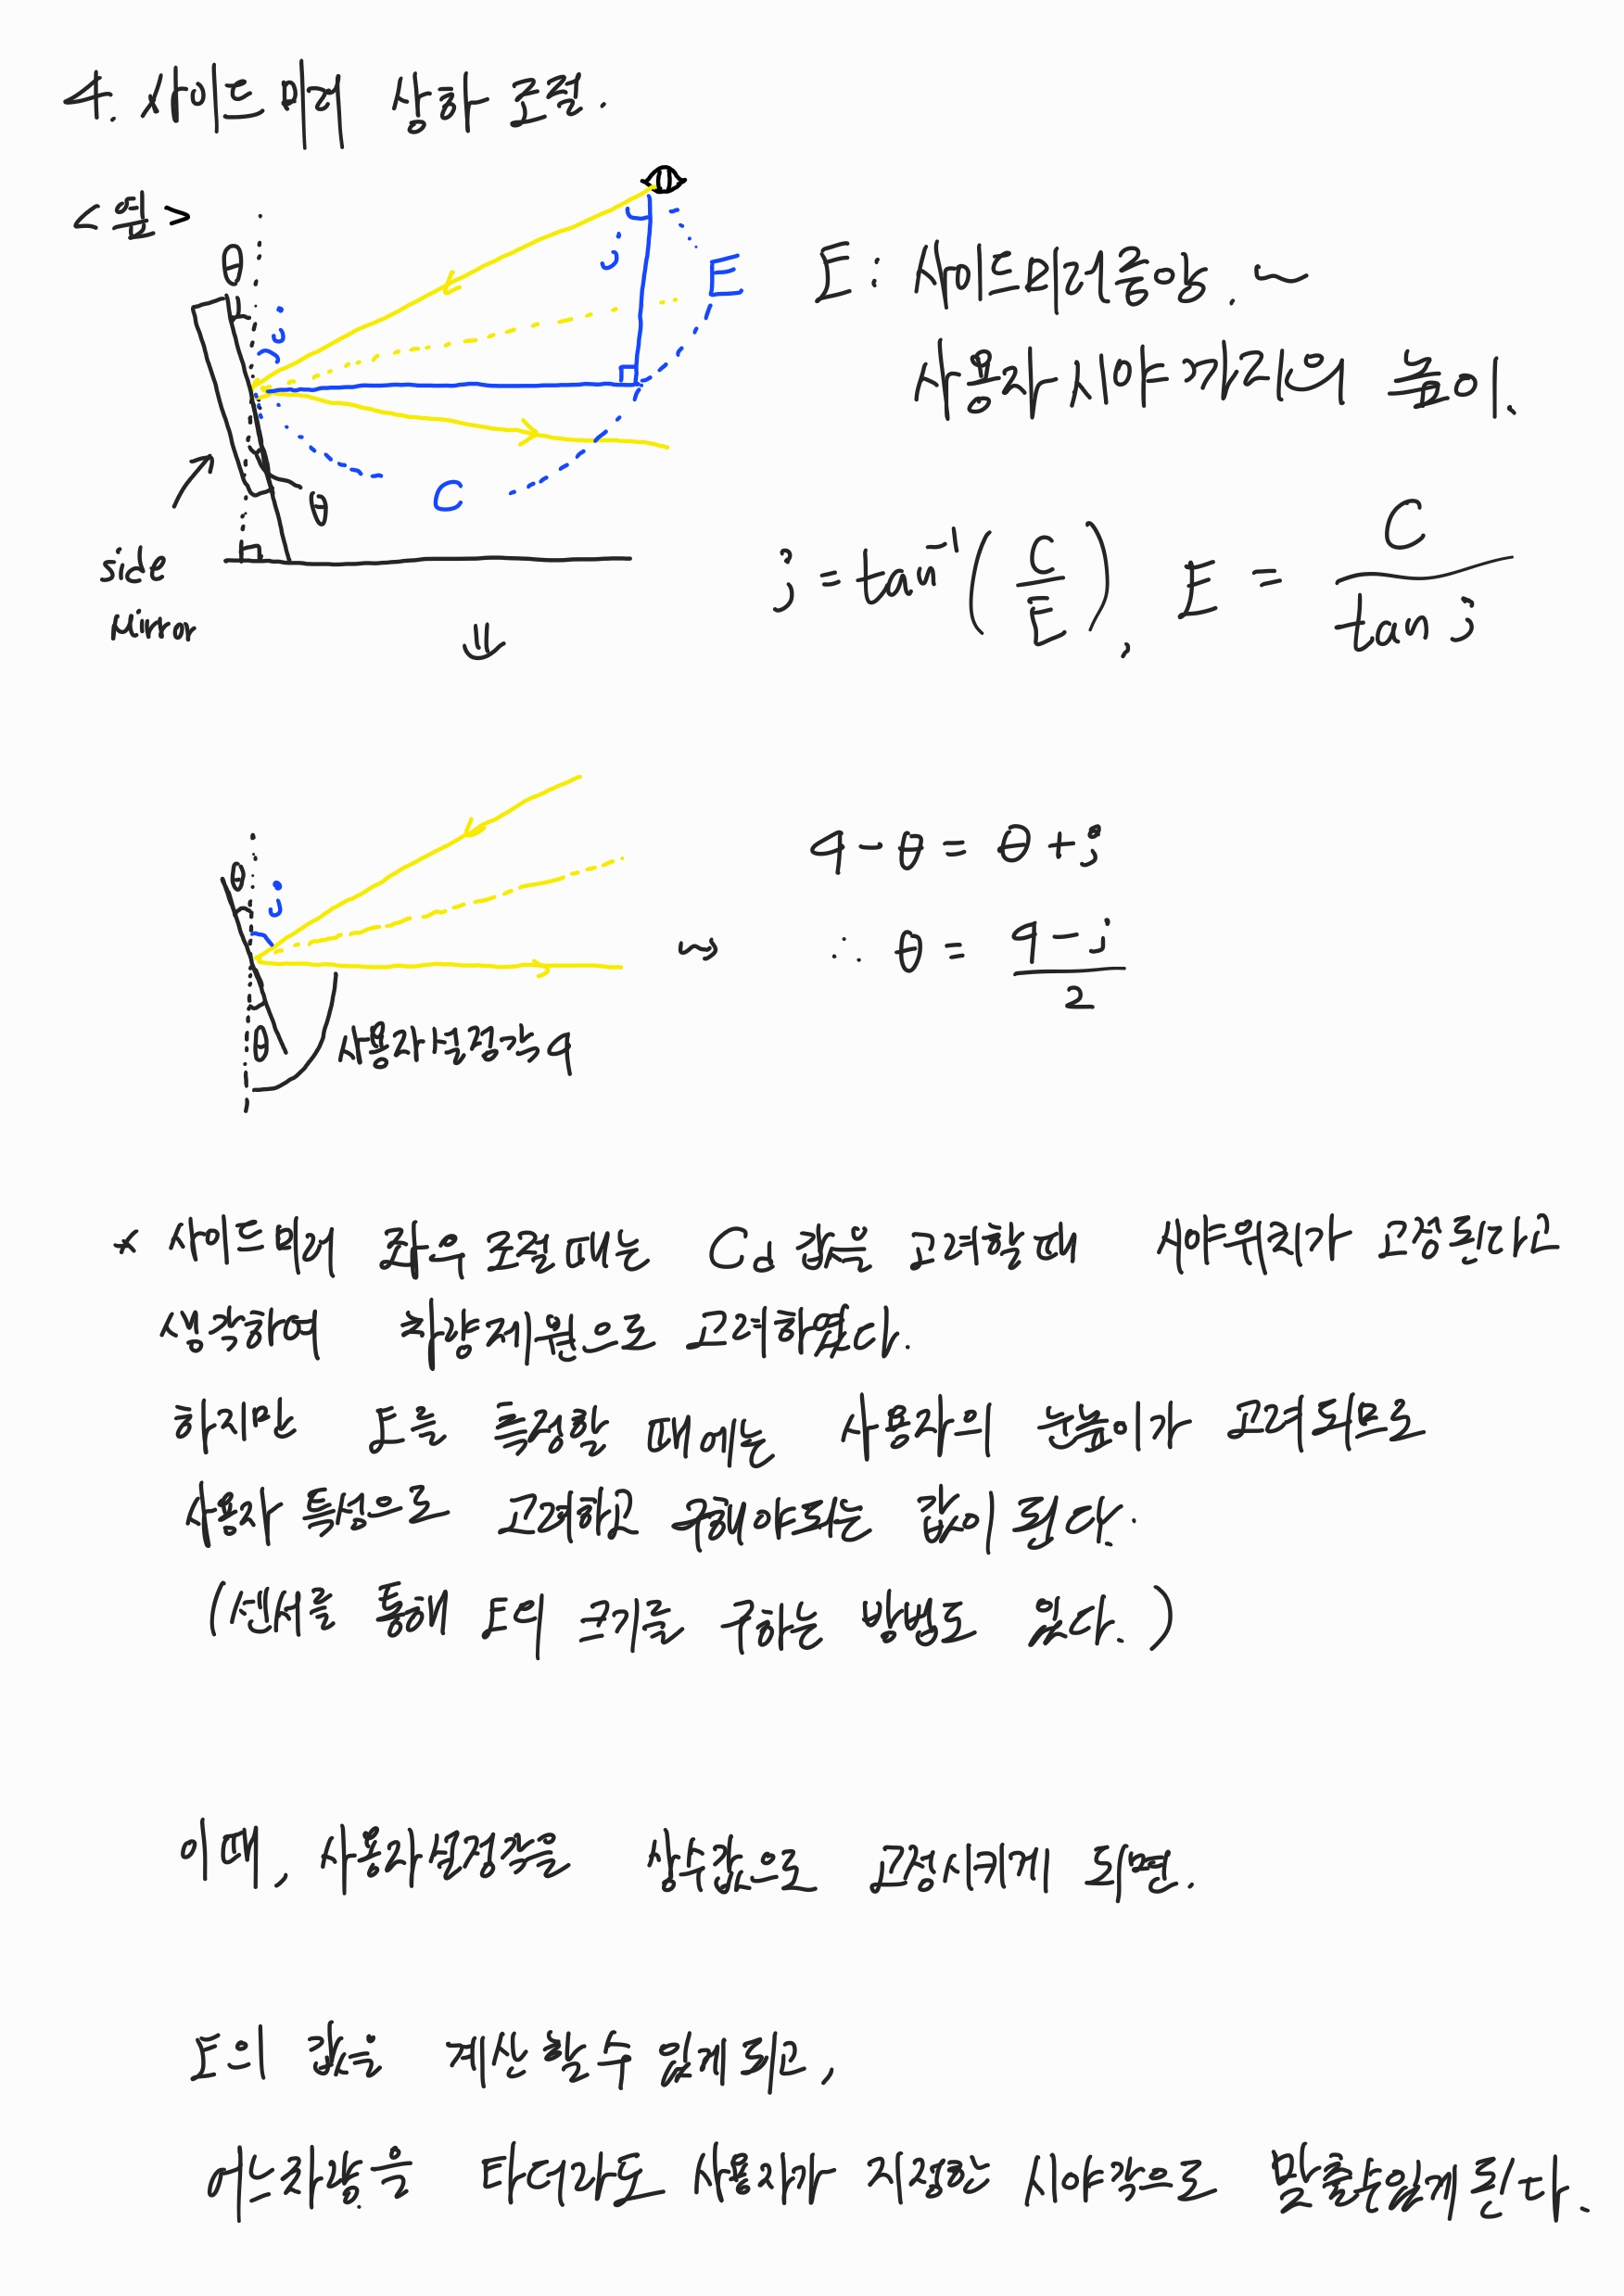 4. 사이드 미러 상하 조절.
<원>
θ
j
j
E
C
θ
side
mirror
E : 사이드미러중앙. ~
사용자 시야 까지의 높이.
j = tan⁻¹(C/E), E = C/tan j
⇓
θ
j
θ
사용자설정각 q
q - θ = θ + j
~> ∴ θ = (q - j)/2
* 사이드미러 좌우 조절 때는 Cd 값을 고려할 때 시야위치가 고정된다고
생각하여 차량제원으로 고려하였다.
하지만 E를 특정할 때에는 사용자의 눈높이가 고려되므로
사용자 특성으로 고려하고 구해야하는 값이 된다.
(센서를 통해 E의 크기를 구하는 방법도 있다.)
이때, 사용자설정각을 상수값으로 고정시키게 되면.
E의 값을 계산 할 수 있게 되고,
어느차량을 타더라도 사용자가 지정한 시야각으로 맞출수있게 된다.